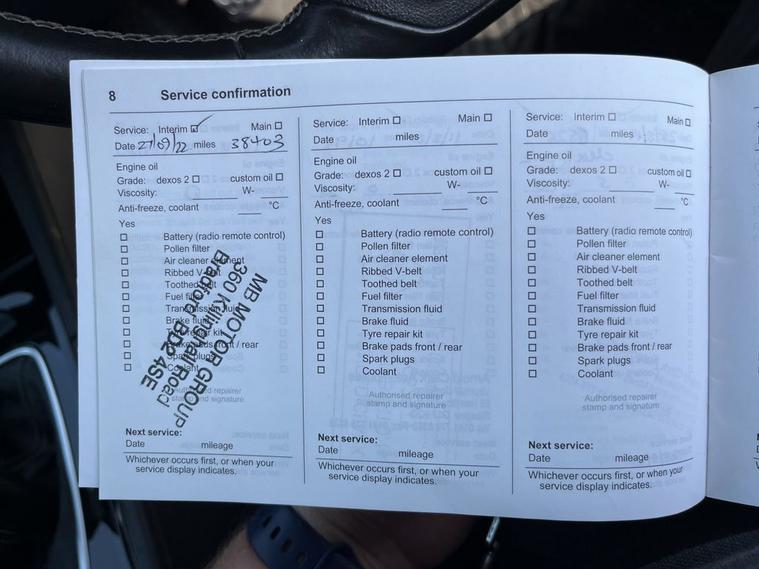 8 Service confirmation
Service: Interim ☑ Main ☐
Date 27/09/22 miles 38403
Engine oil
Grade: dexos 2 ☐ custom oil ☐
Viscosity: ____ W- ____
Anti-freeze, coolant ____ °C
Yes
☐ Battery (radio remote control)
☐ Pollen filter
☐ Air cleaner element
☐ Ribbed V-belt
☐ Toothed belt
☐ Fuel filter
☐ Transmission fluid
☐ Brake fluid
☐ Tyre repair kit
☐ Brake pads front / rear
☐ Spark plugs
☐ Coolant
Authorised repairer
stamp and signature
MB MOTOR GROUP
360 Killinghall Road
Bradford BD2 4SE
Next service:
Date mileage
Whichever occurs first, or when your
service display indicates.
Service: Interim ☐ Main ☐
Date miles
Engine oil
Grade: dexos 2 ☐ custom oil ☐
Viscosity: ____ W- ____
Anti-freeze, coolant ____ °C
Yes
☐ Battery (radio remote control)
☐ Pollen filter
☐ Air cleaner element
☐ Ribbed V-belt
☐ Toothed belt
☐ Fuel filter
☐ Transmission fluid
☐ Brake fluid
☐ Tyre repair kit
☐ Brake pads front / rear
☐ Spark plugs
☐ Coolant
Authorised repairer
stamp and signature
Next service:
Date mileage
Whichever occurs first, or when your
service display indicates.
Service: Interim ☐ Main ☐
Date miles
Engine oil
Grade: dexos 2 ☐ custom oil ☐
Viscosity: ____ W- ____
Anti-freeze, coolant ____ °C
Yes
☐ Battery (radio remote control)
☐ Pollen filter
☐ Air cleaner element
☐ Ribbed V-belt
☐ Toothed belt
☐ Fuel filter
☐ Transmission fluid
☐ Brake fluid
☐ Tyre repair kit
☐ Brake pads front / rear
☐ Spark plugs
☐ Coolant
Authorised repairer
stamp and signature
Next service:
Date mileage
Whichever occurs first, or when your
service display indicates.